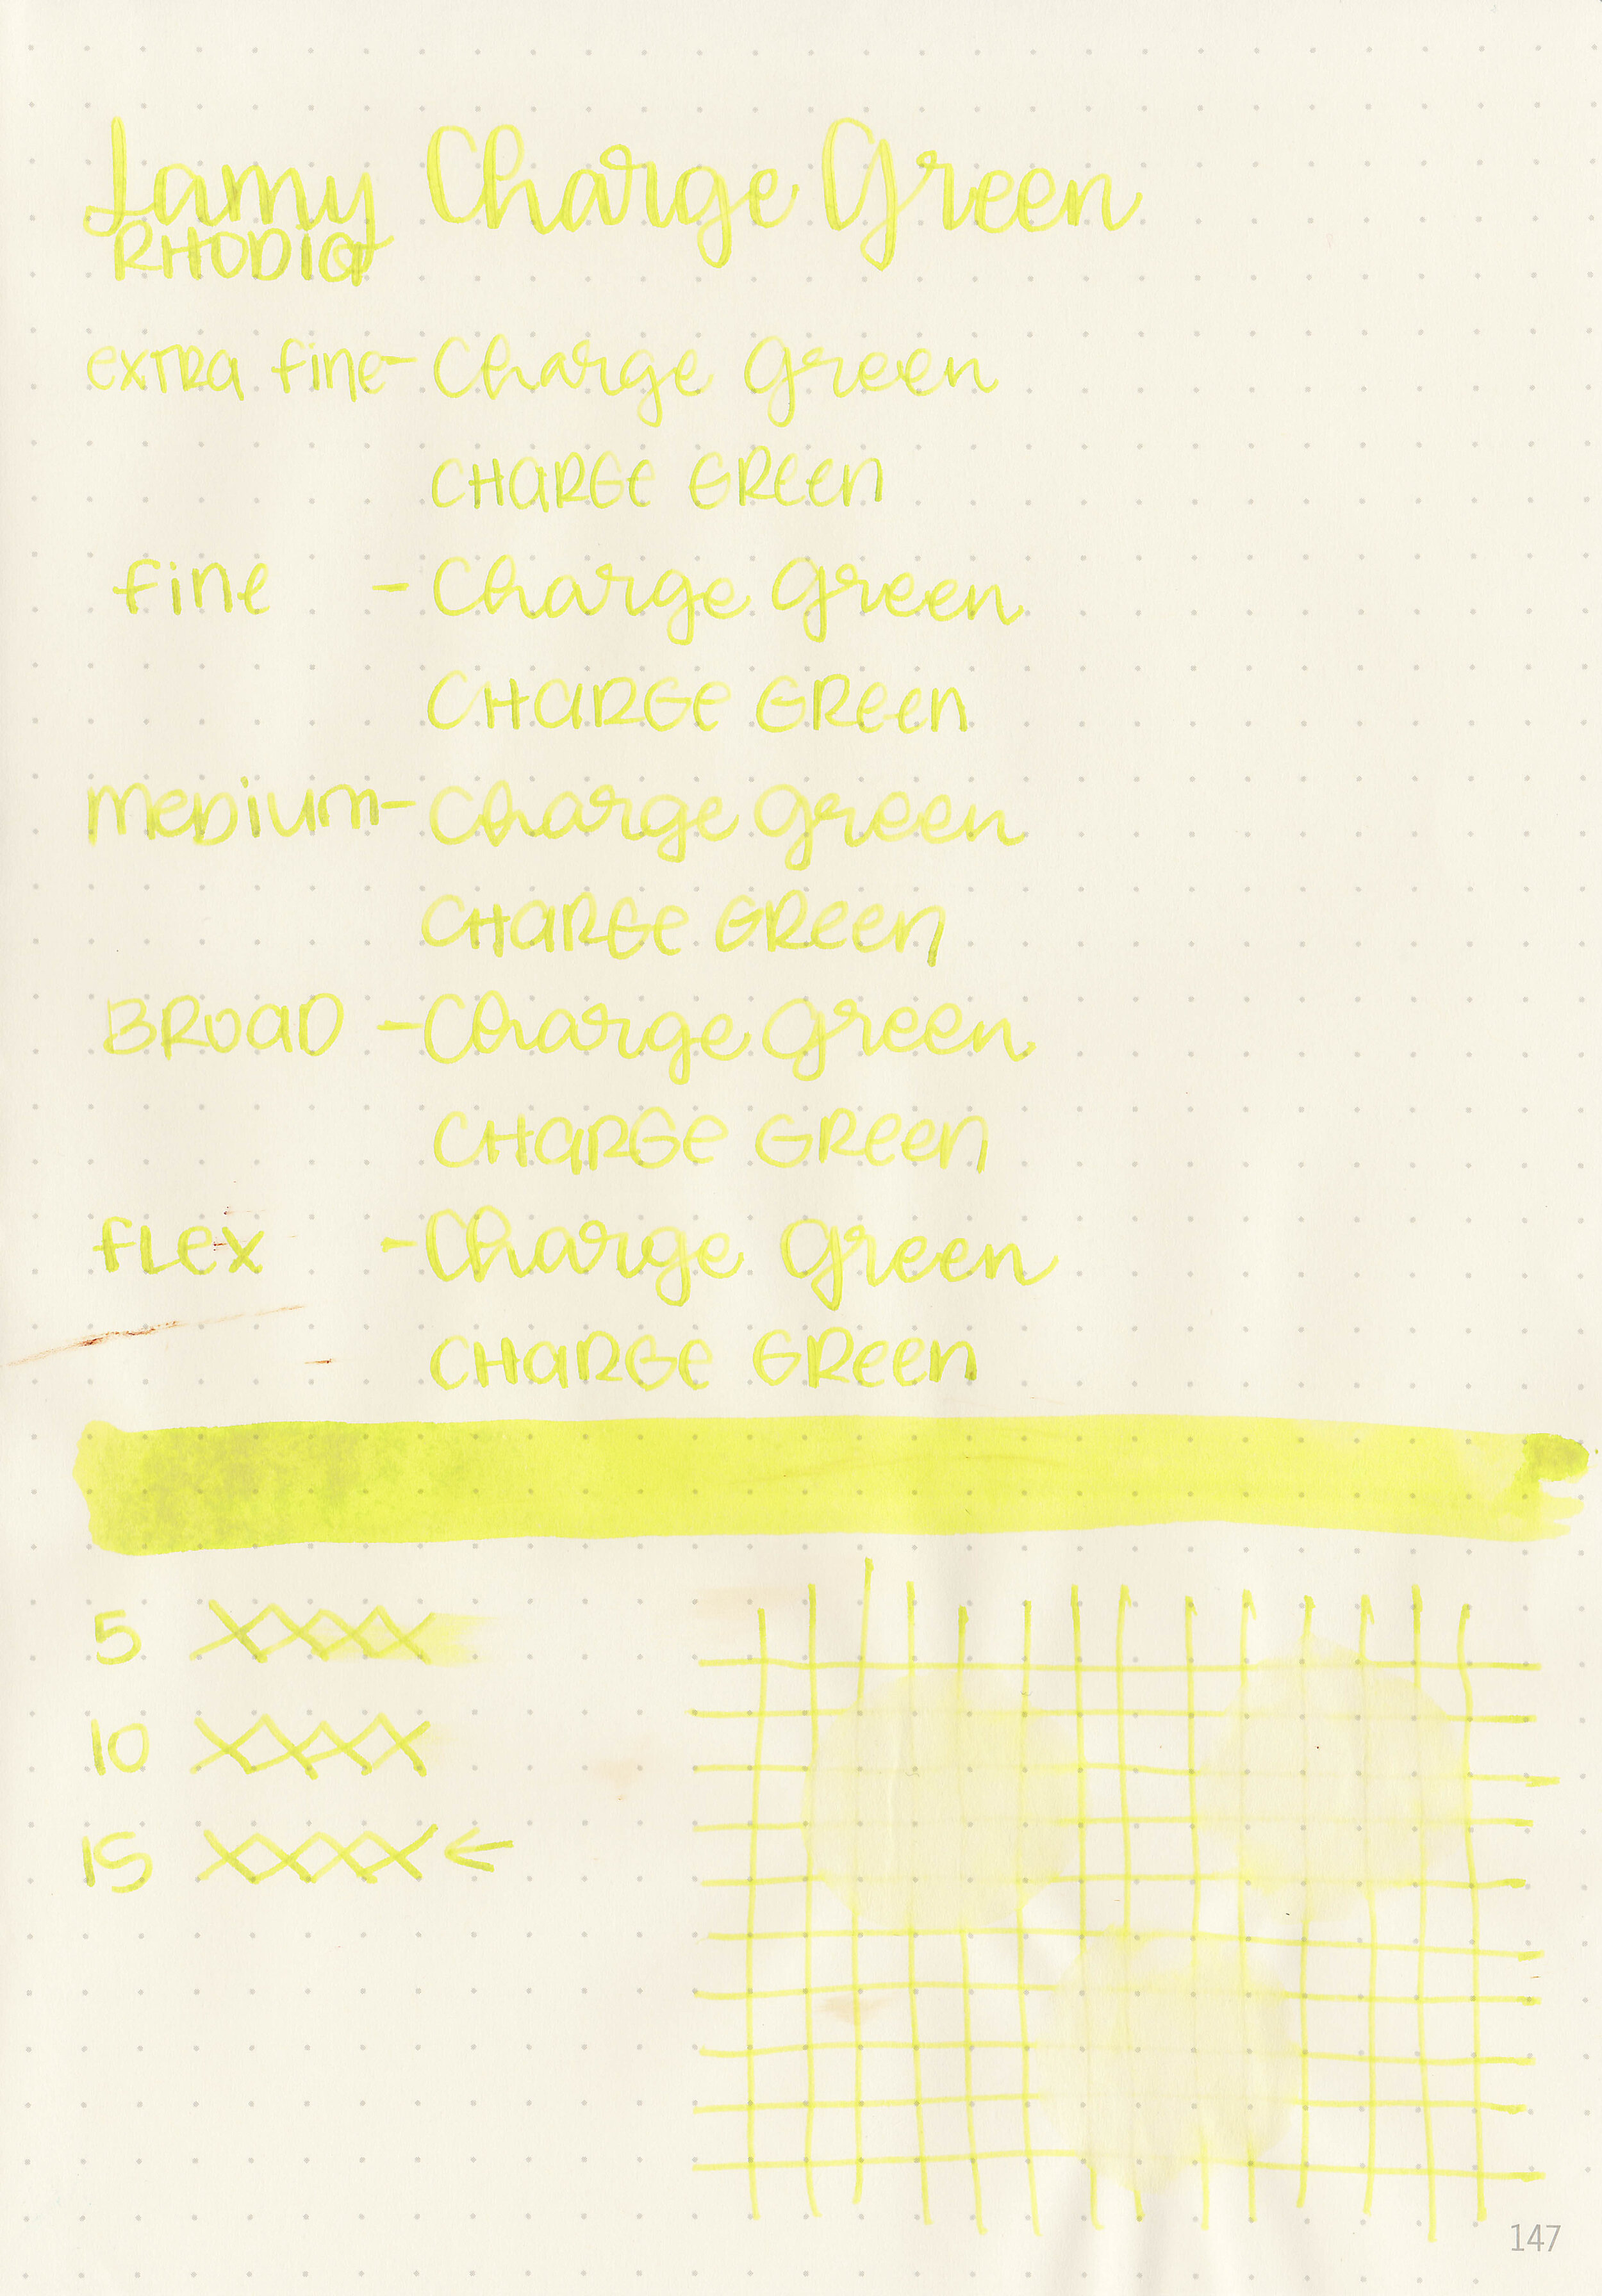 Lamy Charge Green
RHODIA
extra fine - Charge Green
CHARGE GREEN
fine - Charge Green
CHARGE GREEN
MEDIUM - Charge Green
CHARGE GREEN
BROAD - Charge Green
CHARGE GREEN
FLEX - Charge Green
CHARGE GREEN
5 XXXX
10 XXXX
15 XXXX ←
147